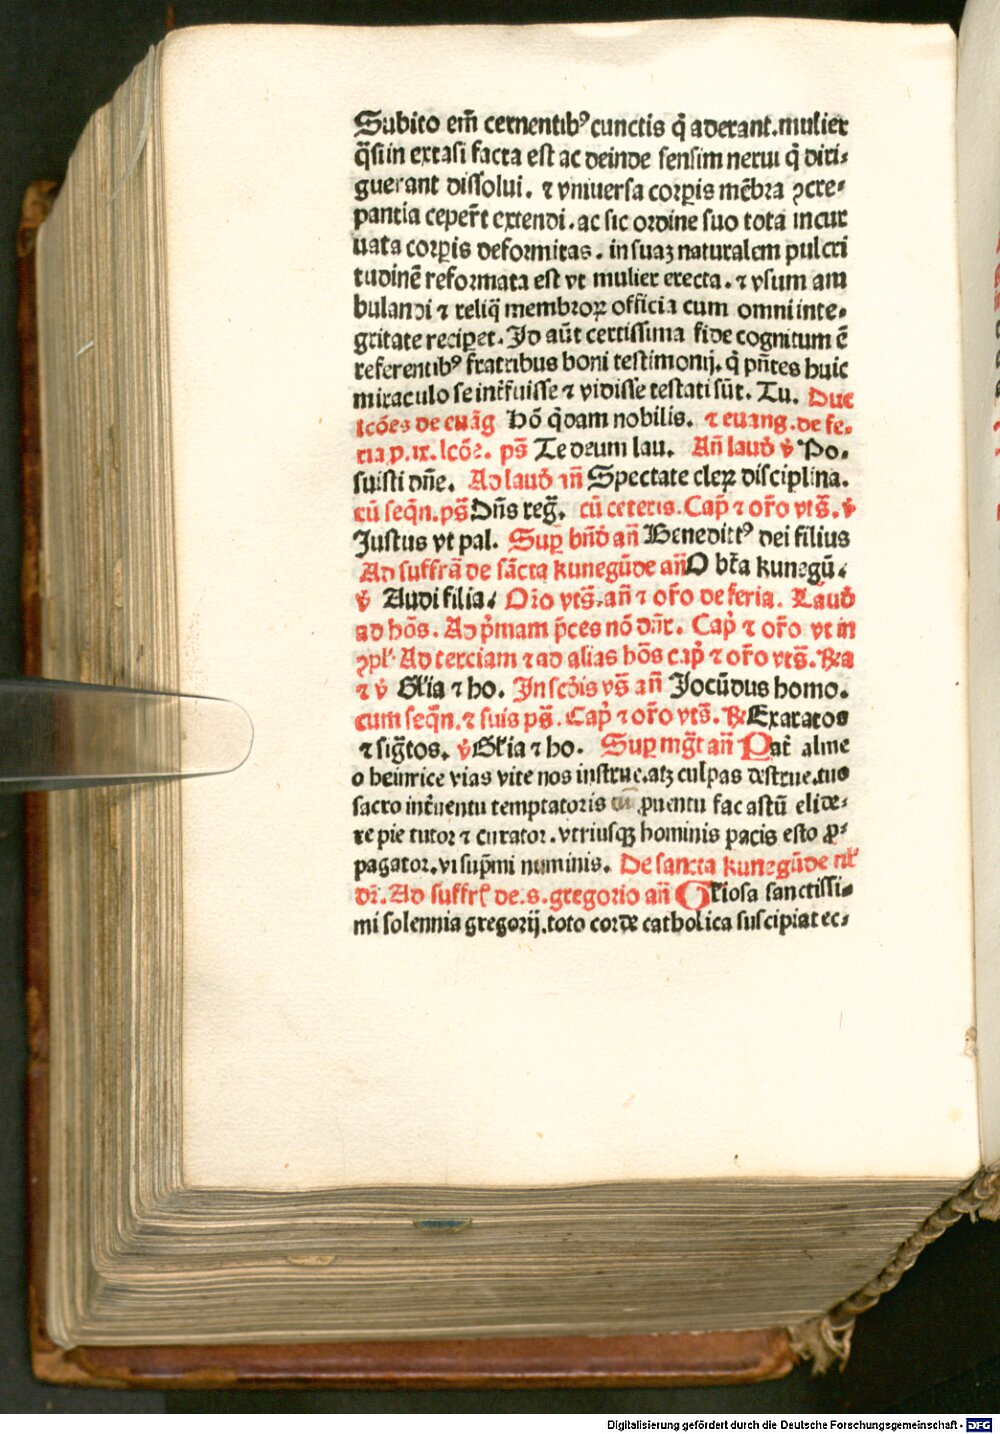 Subito em̄ cernentibꝰ cunctis q̄ aderant. mulier
q̄si in extasi facta est ac deinde sensim nerui q̄ diri-
guerant dissolui. ⁊ vniuersa corꝑis mēbra ꝯcre-
pantia ceper̄t extendi. ac sic ordine suo tota incur
uata corꝑis deformitas. in suaꝫ naturalem pulcri
tudinē reformata est vt mulier erecta. ⁊ vsum am
bulandi ⁊ reliq̄ membroꝝ officia cum omni inte-
gritate reciꝑet. Id aūt certissima fide cognitum ē
referentibꝰ fratribus boni testimonij. q̄ pn̄tes huic
miraculo se int̄fuisse ⁊ vidisse testati sūt. Tu. Due
lcōes de euāg Hō q̄dam nobilis. ⁊ euang. de fe-
ria p. ix. lcōe. ps̄ Te deum lau. An̄ laud̄ v̄ Po-
suisti dn̄e. Ad laud̄ an̄ Spectate cleꝝ disciplina.
cū seq̄n. ps̄ Dn̄s reḡ. cū ceteris. Cap̄ ⁊ or̄o vts̄. v̄
Justus vt pal. Suꝑ bn̄d̄ an̄ Benedictꝰ dei filius
Ad suffrā de sācta kunegūde an̄ O bt̄a kunegū.
v̄ Audi filia. Or̄o vts̄. an̄ ⁊ or̄o de feria. Laud̄
ad hōs. Ad p̄mam p̄ces nō dn̄r. Cap̄ ⁊ or̄o vt in
ꝯpl̄. Ad terciam ⁊ ad alias hōs cap̄ ⁊ or̄o vts̄. ℞a
⁊ v̄ Gl̄ia ⁊ ho. In scd̄is vs̄ an̄ Jocūdus homo.
cum seq̄n. ⁊ suis ps̄. Cap̄ ⁊ or̄o vts̄. ℞ Exaratos
⁊ siḡtos. v̄ Gl̄ia ⁊ ho. Suꝑ mḡt an̄ Pat̄ alme
o heinrice vias vite nos instrue. atꝫ culpas destrue. tuo
sacro int̄uentu temptatoris ꝓuentu fac astū elide-
re pie tutor ⁊ curator. vtriusqꝫ hominis pacis esto ꝓ-
pagator. vi sup̄mi numinis. De sancta kunegūde nl̄
dr̄. Ad suffrꝭ de. s. gregorio an̄ Gl̄iosa sanctissi-
mi solennia gregorij. toto corde catholica suscipiat ec-
Digitalisierung gefördert durch die Deutsche Forschungsgemeinschaft - DFG